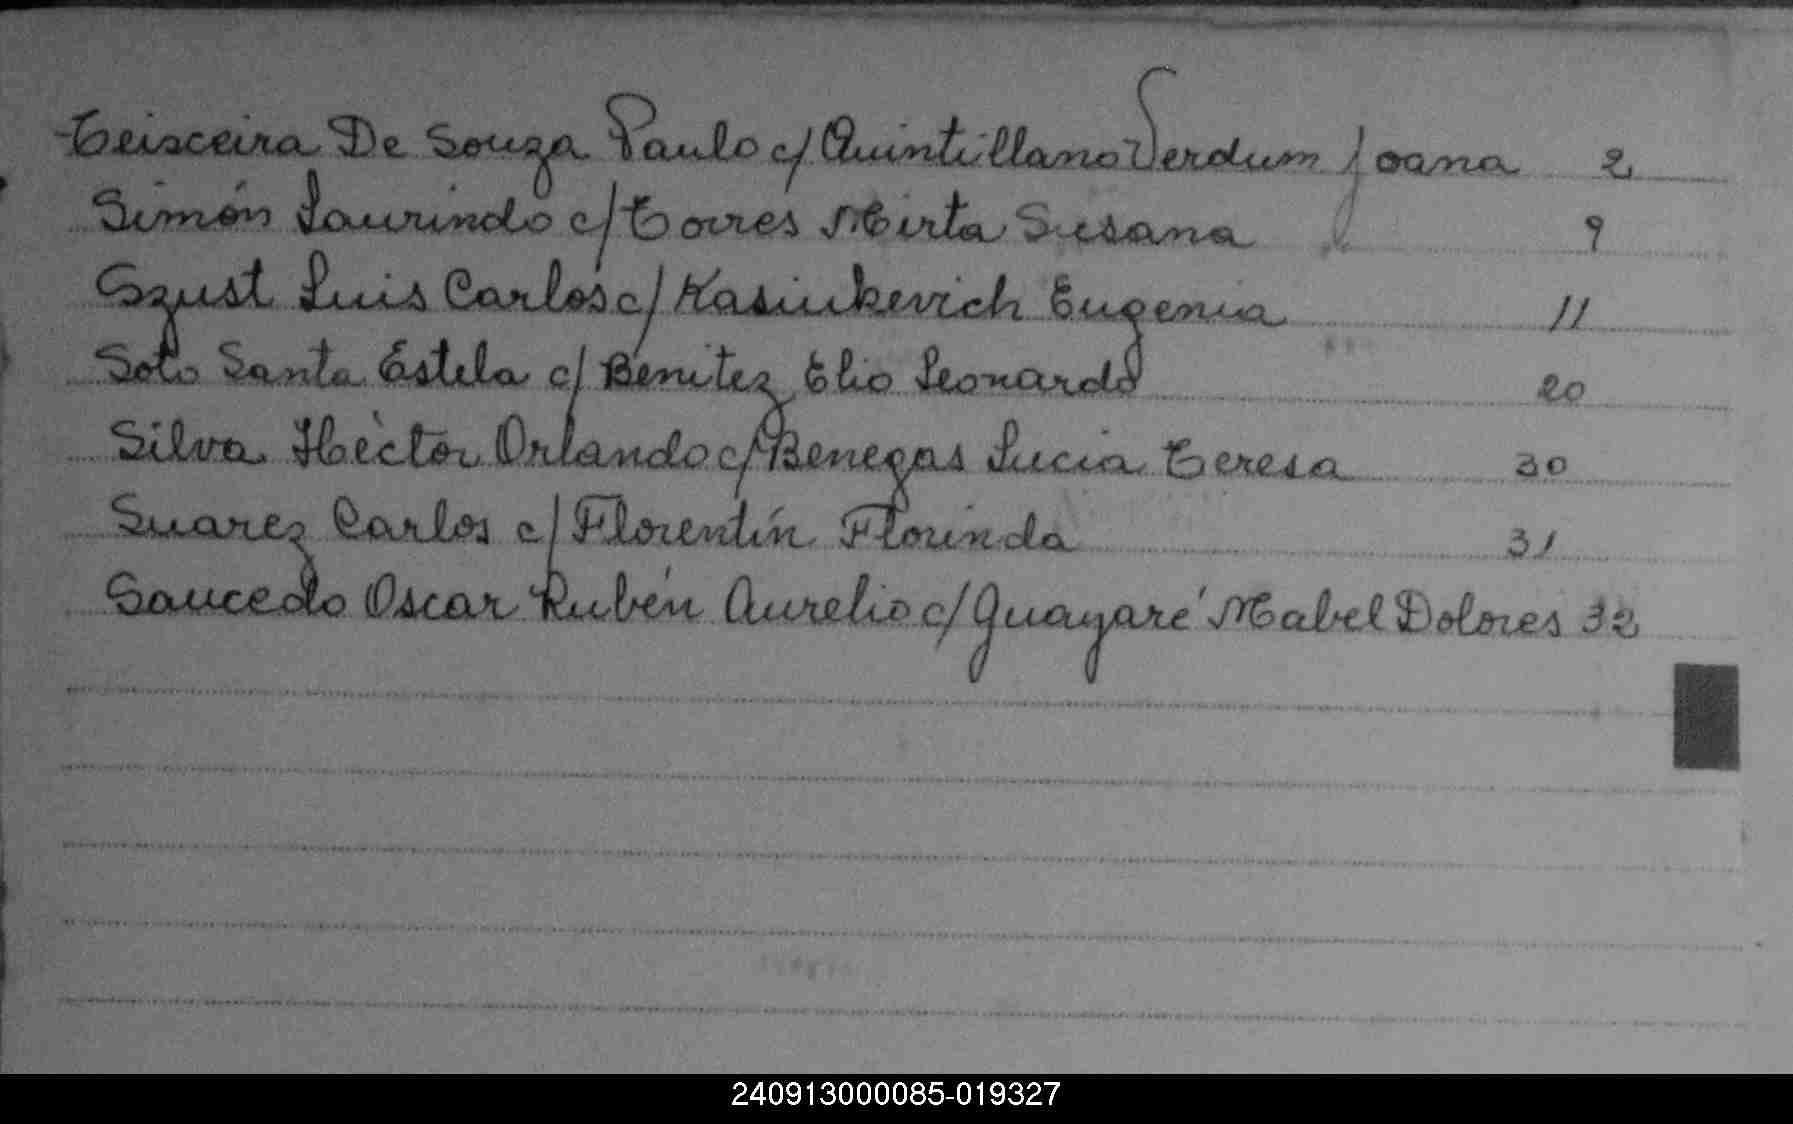 Teisceira De Souza Paulo c/ Quintillano Verdum Joana 2
Simón Laurindo c/ Torres Mirta Susana 9
Szust Luis Carlos c/ Kasiukevich Eugenia 11
Soto Santa Estela c/ Benitez Elio Leonardo 20
Silva Héctor Orlando c/ Benegas Lucia Teresa 30
Suarez Carlos c/ Florentín Florinda 31
Saucedo Oscar Rubén Aurelio c/ Guayaré Mabel Dolores 32
240913000085-019327